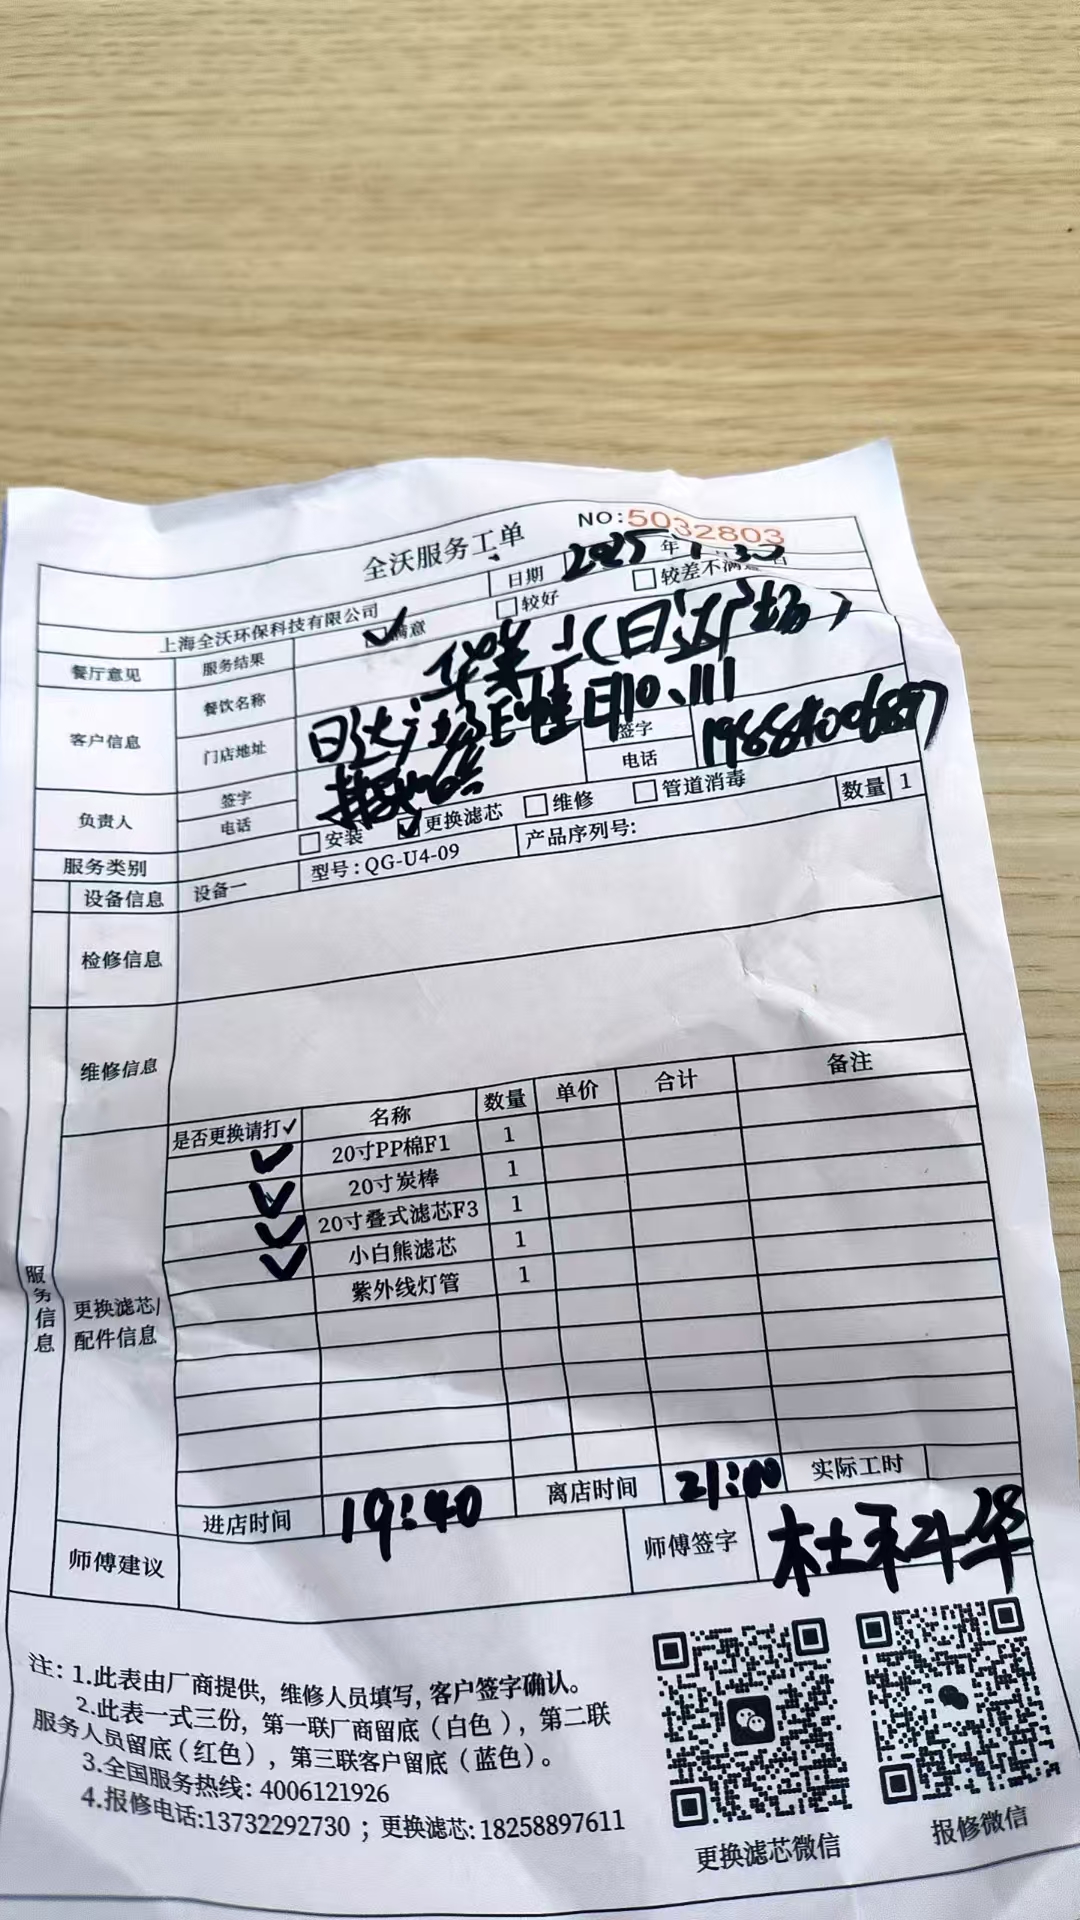 全沃服务工单
NO:5032803
上海全沃环保科技有限公司
日期 2025年1.30
餐厅意见 服务结果 满意 较好 较差不满意
客户信息 餐饮名称 (日达广场)
门店地址 日达广场 110、111
签字
电话
负责人 签字
电话
服务类别 安装 更换滤芯 维修 管道消毒
设备信息 设备一 型号:QG-U4-09 产品序列号: 数量 1
检修信息
维修信息
服务信息
更换滤芯/
配件信息
是否更换请打✓ 名称 数量 单价 合计 备注
✓ 20寸PP棉F1 1
✓ 20寸炭棒 1
✓ 20寸叠式滤芯F3 1
✓ 小白熊滤芯 1
紫外线灯管 1
进店时间 19:40 离店时间 21:00 实际工时
师傅建议 师傅签字 杜科华
注:1.此表由厂商提供, 维修人员填写, 客户签字确认。
2.此表一式三份, 第一联厂商留底(白色), 第二联
服务人员留底(红色), 第三联客户留底(蓝色)。
3.全国服务热线: 4006121926
4.报修电话:13732292730 ; 更换滤芯: 18258897611
更换滤芯微信
报修微信